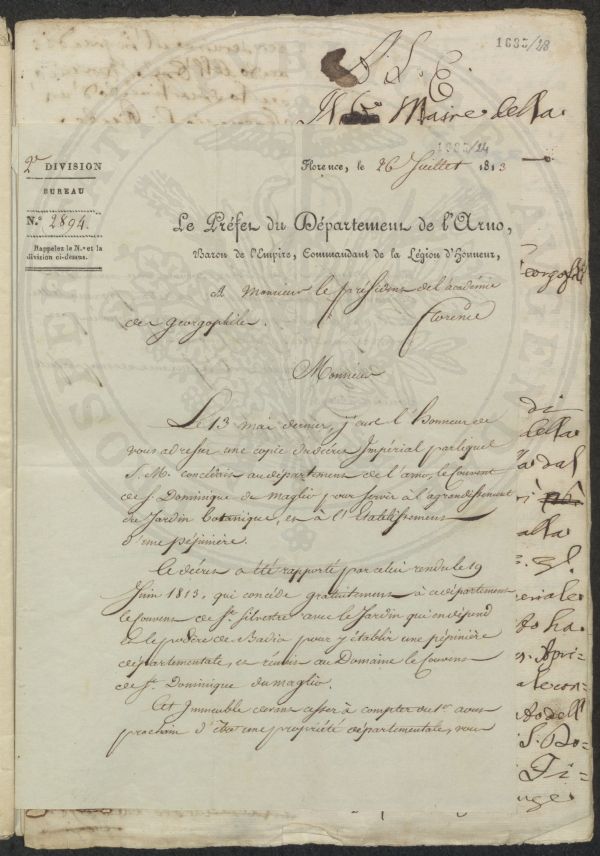 1685/28
S. L. E.
Maire della
1385/24
2e DIVISION
BUREAU
N.° 2894.
Rappelez le N.° et la
division ci-dessus.
Florence, le 26 Juillet 1813
Le Préfet du Département de l'Arno,
Baron de l'Empire, Commandant de la Légion d'Honneur,
A Monsieur le président de l'académie
des Georgophiles. Florence
Monsieur
Le 13 mai dernier, j'eus l'honneur de
vous adresser une copie du décret Impérial par lequel
S. M. concédait au département de l'arno, le Couvent
de St. Dominique du maglio pour servir à l'agrandissement
du Jardin botanique, et à l'Etablissement
d'une pépinière.
Ce décret a été rapporté par celui rendu le 19
Juin 1813, qui concède gratuitement à ce département
le Couvent de St. Silvestre avec le Jardin qui en dépend
et le podère de Badia pour y établir une pépinière
départementale, et réunit au Domaine le Couvent
de St. Dominique du maglio.
Cet Immeuble devant cesser à compter du 1er. aoust
prochain d'être une propriété départementale, vous
di
della
dal
alla
S. Do=
Ti=